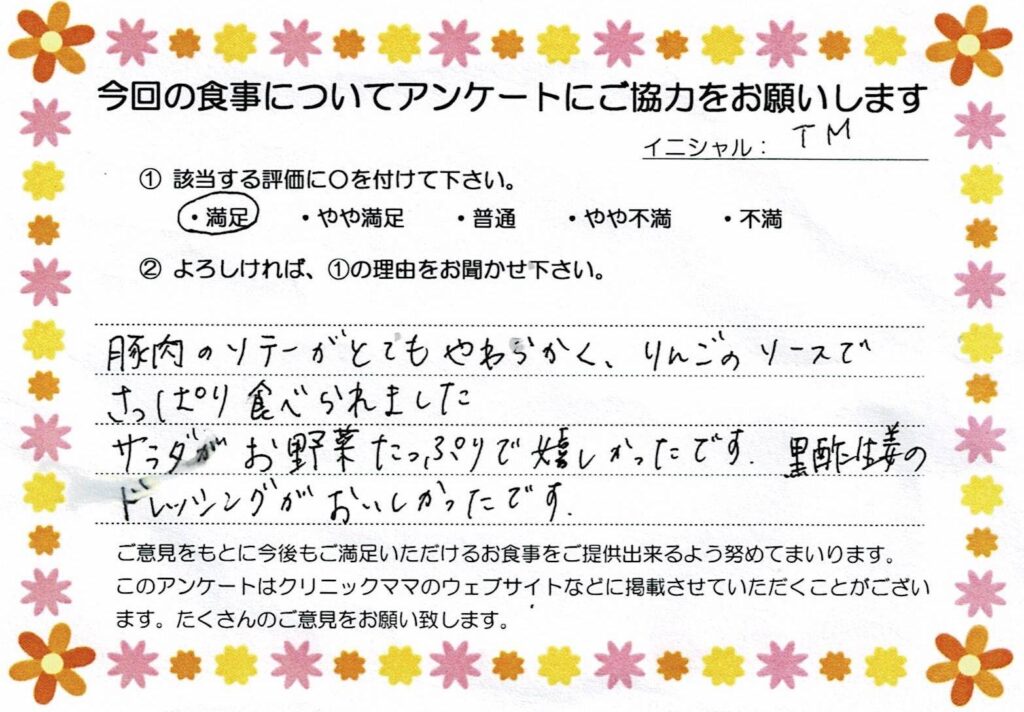 今回の食事についてアンケートにご協力をお願いします
イニシャル： TM
① 該当する評価に〇を付けて下さい。
・満足 ・やや満足 ・普通 ・やや不満 ・不満
② よろしければ、①の理由をお聞かせ下さい。
豚肉のソテーがとてもやわらかく、りんごのソースで
さっぱり食べられました
サラダがお野菜たっぷりで嬉しかったです. 黒酢生姜の
ドレッシングがおいしかったです.
ご意見をもとに今後もご満足いただけるお食事をご提供出来るよう努めてまいります。
このアンケートはクリニックママのウェブサイトなどに掲載させていただくことがござい
ます。たくさんのご意見をお願い致します。